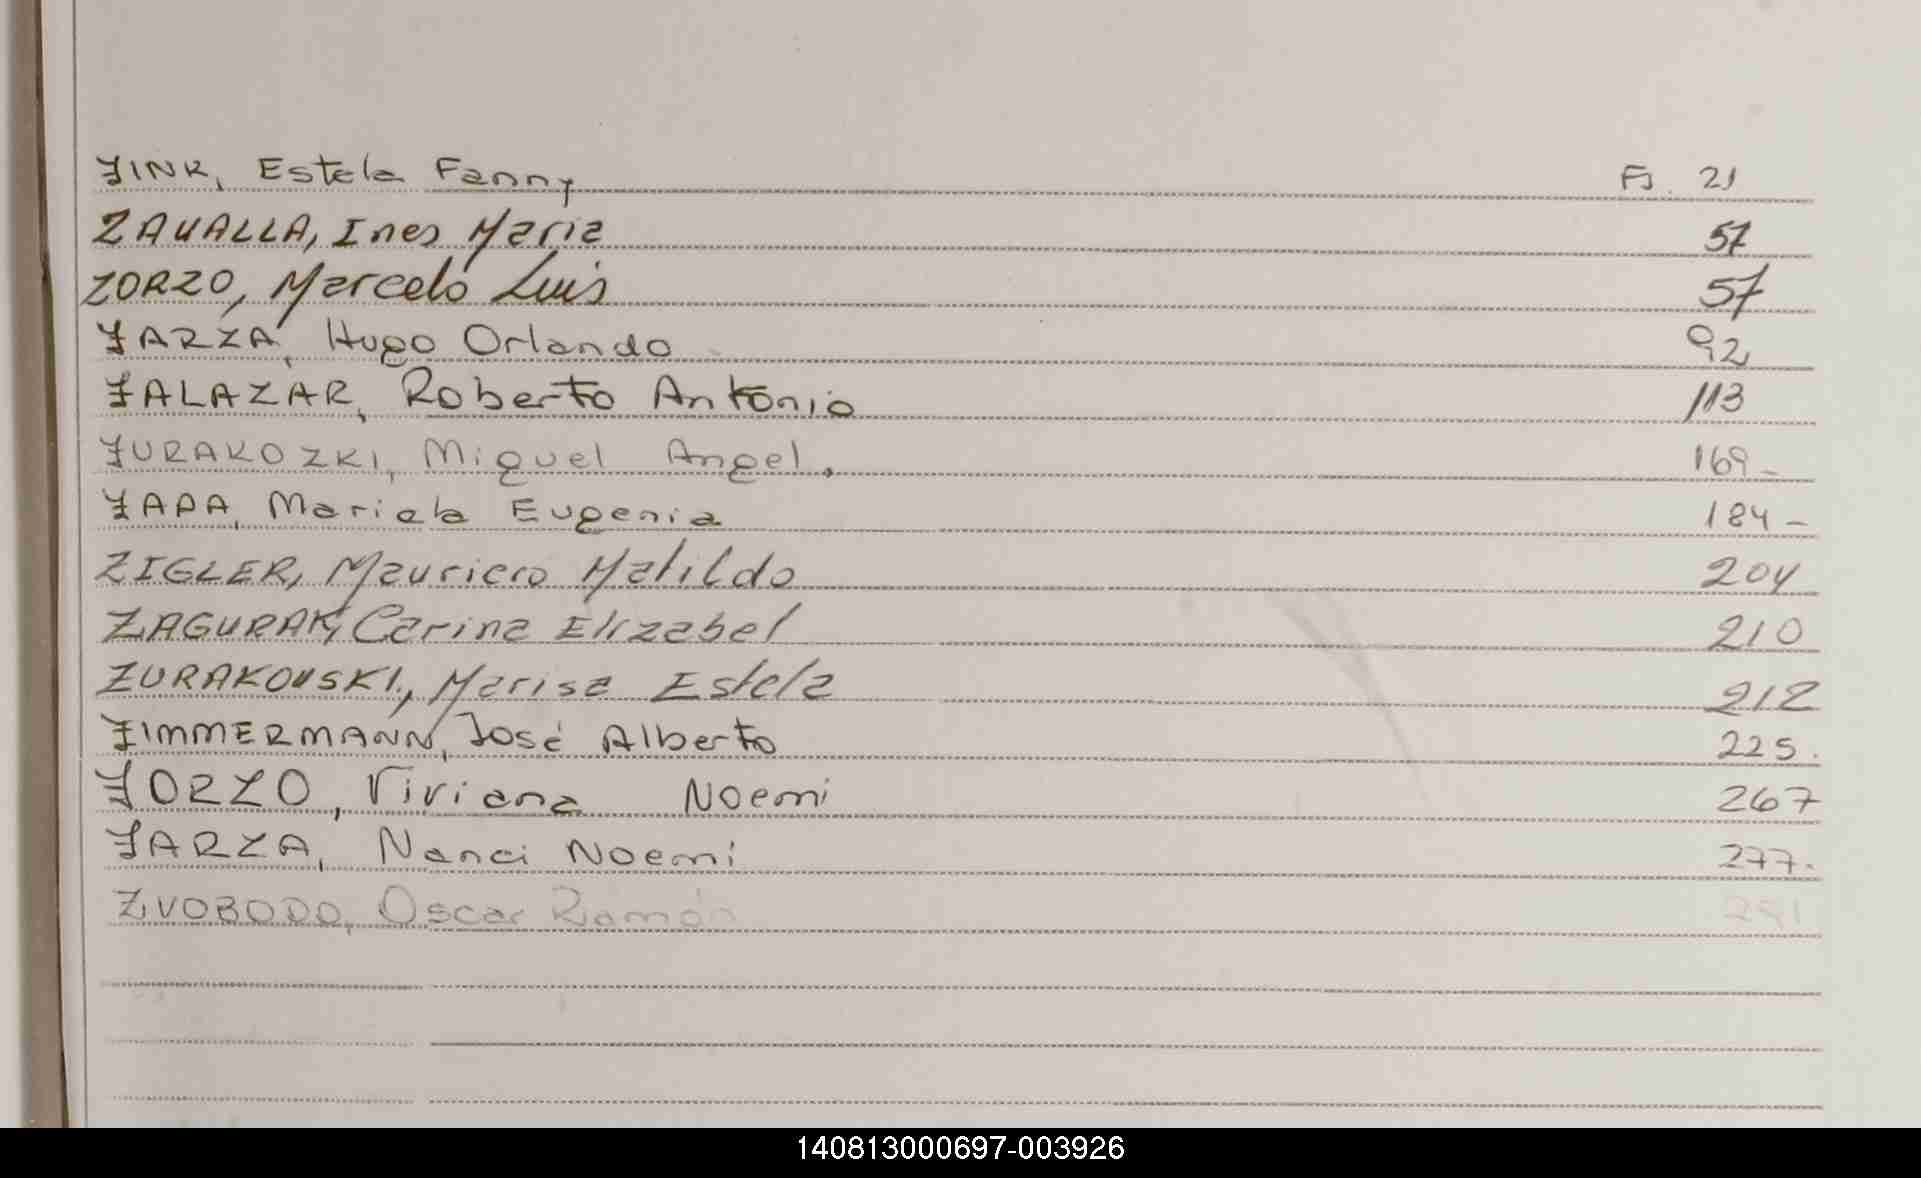 ZINK, Estela Fanny Fs. 21
ZAVALLA, Ines Maria 57
ZORZO, Marcelo Luis 57
ZARZA, Hugo Orlando 92
ZALAZAR, Roberto Antonio 113
ZURAKOZKI, Miguel Angel. 169-
ZAPA, Mariela Eugenia 184-
ZIGLER, Mauricio Matildo 204
ZAGURAK, Carina Elizabel 210
ZURAKOVSKI, Marisa Estela 212
ZIMMERMANN, José Alberto 225.
ZORZO, Viviana Noemi 267
ZARZA, Nanci Noemi 277.
ZVOBODO, Oscar Ramón
140813000697-003926